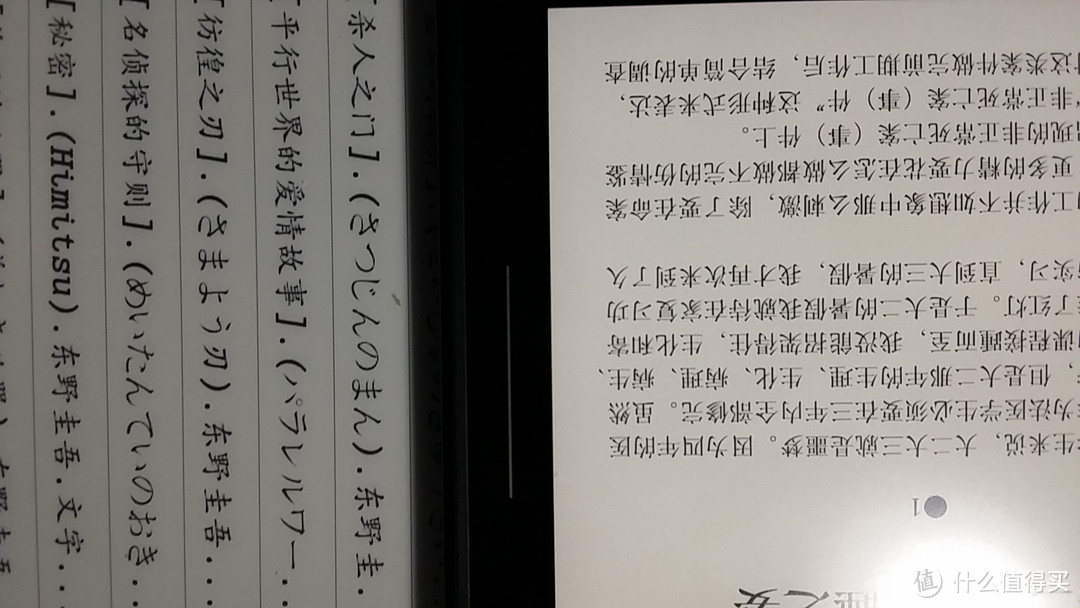 [杀人之门].(さつじんのまん).东野圭.
[平行世界的爱情故事].(パラレルワー...
[彷徨之刃].(さまよう刃).东野圭吾...
[名侦探的守则].(めいたんていのおき...
[秘密].(Himitsu).东野圭吾.文字...
1
生来说，大二大三就是噩梦。因为四年的医
为法医学生必须要在三年内全部修完。虽然
，但是大二那年的生理、生化、病理、病生、
课程接踵而至，我没能招架得住，生化和寄
了红灯。于是大二的暑假我就待在家复习功
实习，直到大三的暑假，我才再次来到了久
工作并不如想象中那么刺激，除了要在命案
更多的精力要花在怎么做都做不完的伤情鉴
现的非正常死亡案（事）件上。
非正常死亡案（事）件”这种形式来表达，
这类案件做完前期工作后，结合简单的调查
值 什么值得买